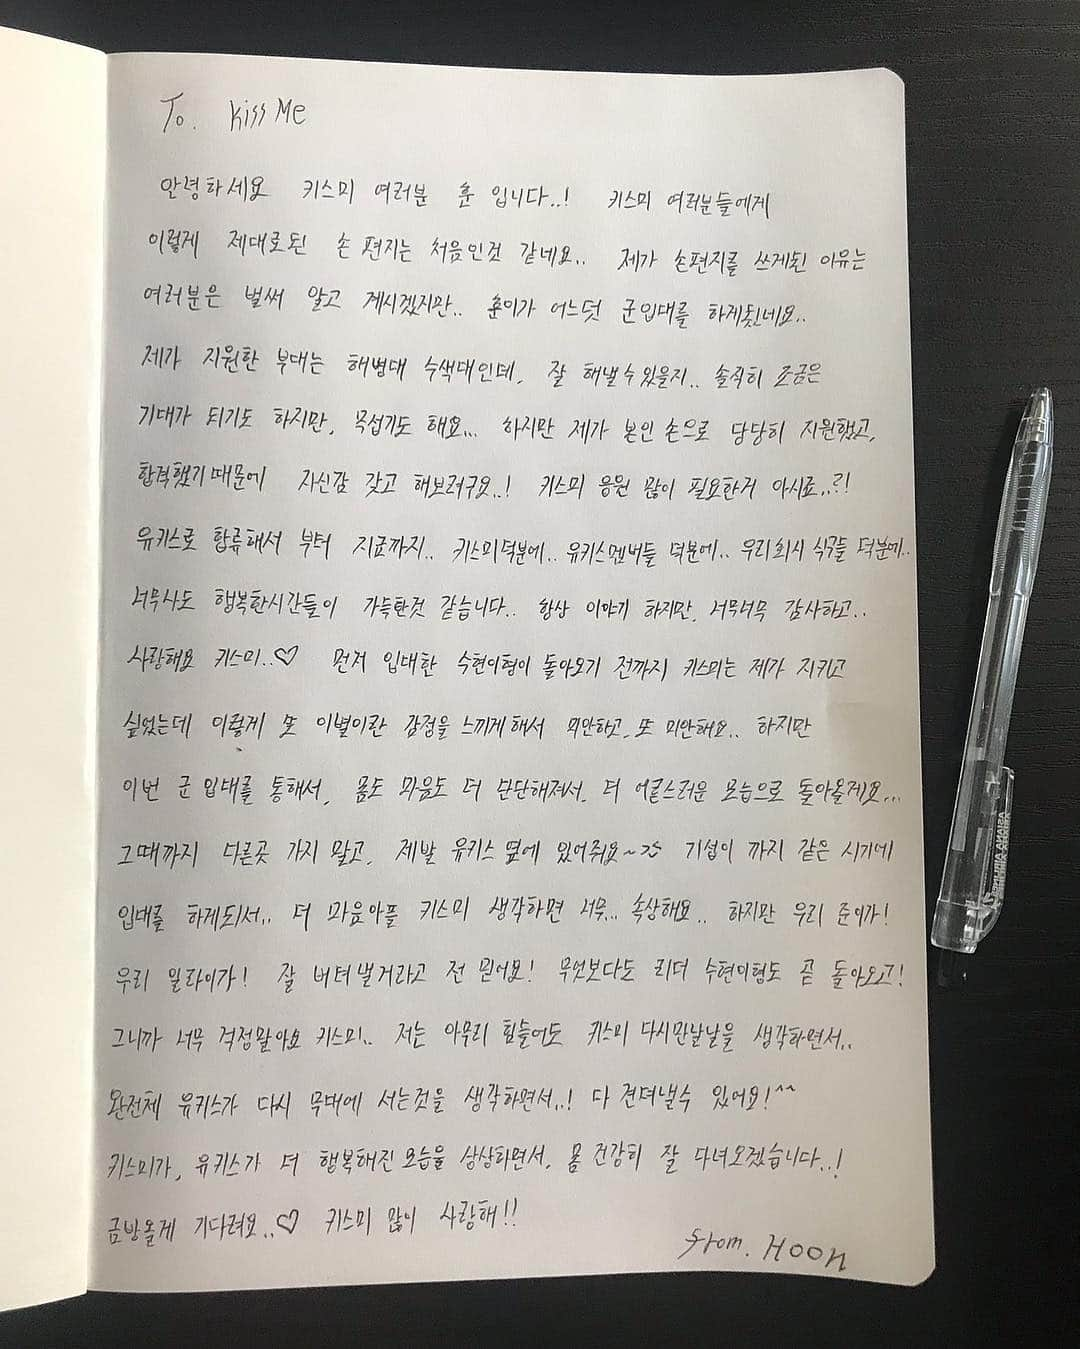 To. Kiss Me
안녕하세요 키스미 여러분 훈 입니다..! 키스미 여러분들에게
이렇게 제대로된 손 편지는 처음인것 같네요.. 제가 손편지를 쓰게된 이유는
여러분은 벌써 알고 계시겠지만.. 훈이가 어느덧 군입대를 하게됫네요..
제가 지원한 부대는 해병대 수색대인데, 잘 해낼수있을지.. 솔직히 조금은
기대가 되기도 하지만, 무섭기도 해요... 하지만 제가 본인 손으로 당당히 지원했고,
합격했기때문에 자신감 갖고 해보려구요..! 키스미 응원 많이 필요한거 아시죠..?!
유키스로 합류해서 부터 지금까지.. 키스미덕분에.. 유키스멤버들 덕분에.. 우리회사 식구들 덕분에..
너무나도 행복한시간들이 가득한것 같습니다.. 항상 이야기 하지만, 너무너무 감사하고..
사랑해요 키스미..♡ 먼저 입대한 수현이형이 돌아오기 전까지 키스미는 제가 지키고
싶었는데 이렇게 또 이별이란 감정을 느끼게해서 미안하고, 또 미안해요.. 하지만
이번 군 입대를 통해서, 몸도 마음도 더 단단해져서, 더 어른스러운 모습으로 돌아올게요...
그때까지 다른곳 가지 말고, 제발 유키스 옆에 있어줘요~^^ 기섭이 까지 같은 시기에
입대를 하게되서.. 더 마음아플 키스미 생각하면 너무... 속상해요.. 하지만 우리 준이가!
우리 일라이가! 잘 버텨낼거라고 전 믿어요! 무엇보다도 리더 수현이형도 곧 돌아오고!
그니까 너무 걱정말아요 키스미.. 저는 아무리 힘들어도 키스미 다시만날날을 생각하면서..
완전체 유키스가 다시 무대에 서는것을 생각하면서..! 다 견뎌낼수 있어요!^^
키스미가, 유키스가 더 행복해진 모습을 상상하면서, 몸 건강히 잘 다녀오겠습니다..!
금방올게 기다려요..♡ 키스미 많이 사랑해!!
from. HOON